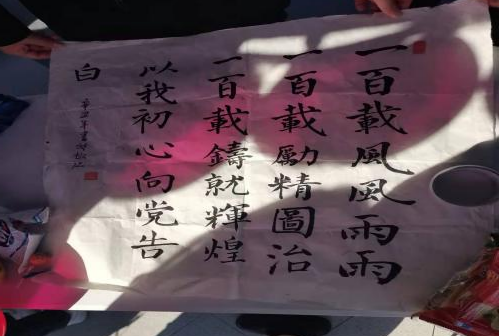 一百載風風雨雨
一百載勵精圖治
一百載鑄就輝煌
以我初心向党告
白